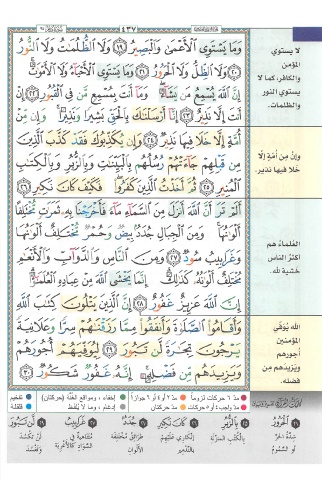 ٤٣٧
وَمَا يَسْتَوِي الْأَعْمَىٰ وَالْبَصِيرُ ١٩ وَلَا الظُّلُمَاتُ وَلَا النُّورُ
٢٠ وَلَا الظِّلُّ وَلَا الْحَرُورُ ٢١ وَمَا يَسْتَوِي الْأَحْيَاءُ وَلَا الْأَمْوَاتُ
إِنَّ اللَّهَ يُسْمِعُ مَن يَشَاءُ وَمَا أَنتَ بِمُسْمِعٍ مَّن فِي الْقُبُورِ ٢٢ إِنْ
أَنتَ إِلَّا نَذِيرٌ ٢٣ إِنَّا أَرْسَلْنَاكَ بِالْحَقِّ بَشِيرًا وَنَذِيرًا وَإِن مِّنْ
أُمَّةٍ إِلَّا خَلَا فِيهَا نَذِيرٌ ٢٤ وَإِن يُكَذِّبُوكَ فَقَدْ كَذَّبَ الَّذِينَ
مِن قَبْلِهِمْ جَاءَتْهُمْ رُسُلُهُم بِالْبَيِّنَاتِ وَبِالزُّبُرِ وَبِالْكِتَابِ
الْمُنِيرِ ٢٥ ثُمَّ أَخَذْتُ الَّذِينَ كَفَرُوا فَكَيْفَ كَانَ نَكِيرِ ٢٦
أَلَمْ تَرَ أَنَّ اللَّهَ أَنزَلَ مِنَ السَّمَاءِ مَاءً فَأَخْرَجْنَا بِهِ ثَمَرَاتٍ مُّخْتَلِفًا
أَلْوَانُهَا وَمِنَ الْجِبَالِ جُدَدٌ بِيضٌ وَحُمْرٌ مُّخْتَلِفٌ أَلْوَانُهَا
وَغَرَابِيبُ سُودٌ ٢٧ وَمِنَ النَّاسِ وَالدَّوَابِّ وَالْأَنْعَامِ
مُخْتَلِفٌ أَلْوَانُهُ كَذَٰلِكَ إِنَّمَا يَخْشَى اللَّهَ مِنْ عِبَادِهِ الْعُلَمَاءُ
إِنَّ اللَّهَ عَزِيزٌ غَفُورٌ ٢٨ إِنَّ الَّذِينَ يَتْلُونَ كِتَابَ اللَّهِ
وَأَقَامُوا الصَّلَاةَ وَأَنفَقُوا مِمَّا رَزَقْنَاهُمْ سِرًّا وَعَلَانِيَةً
يَرْجُونَ تِجَارَةً لَّن تَبُورَ ٢٩ لِيُوَفِّيَهُمْ أُجُورَهُمْ
وَيَزِيدَهُم مِّن فَضْلِهِ إِنَّهُ غَفُورٌ شَكُورٌ ٣٠
لا يستوي
المؤمن
والكافر، كما لا
يستوي النور
والظلمات.
وإن من أمة إلا
خلا فيها نذير.
العلماء هم
أكثر الناس
خشية لله.
الله يوفي
المؤمنين
أجورهم
ويزيدهم من
فضله.
مد ٦ حركات لزوماً
مد ٢ أو ٤ أو ٦ جوازاً
إخفاء، ومواقع الغنة (حركتان)
تفخيم
مد حركتان
إدغام، وما لا يلفظ
قلقلة
الْحَرُورُ
بِالزُّبُرِ
كَانَ نَكِيرِ
جُدَدٌ
وَغَرَابِيبُ
لَّن تَبُورَ